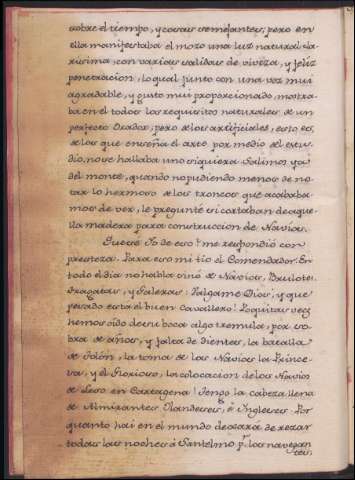 sobre el tiempo, y cosas semejantes, pero en
ella manifestaba el mozo una luz natural cla-
risima, con varias salidas de viveza, y feliz
penetracion, lo qual junto con una voz mui
agradable, y gusto mui proporcionado, mostra-
ba en el todos los requisitos naturales de un
perfecto Orador, pero de los artificiales, esto es,
de los que enseña el arte por medio del estu-
dio, no se hallaba uno siquiera. Salimos ya
del monte, quando no pudiendo menos de no-
tar lo hermoso de los troncos que acababa-
mos de ver, le pregunté si cortaban de aque-
lla madera para construccion de Navios.
Que se Yo de eso? me respondió con
presteza. Para eso mi tio el Comendador. En
todo el dia no habla sinó de Navios, Brulotes
Fragatas, y Galeras. Valgame Dios, y que
pesado está el buen Cavallero! Poquitas veces
hemos oido de su boca algo tremula, por so-
bra de años, y falta de dientes, la batalla
de Tolón, la toma de los Navios la Prince-
sa, y el Glorioso, la colocacion de los Navios
de Leso en Cartagena! Tengo la cabeza llena
de Almirantes Olandeses, é Ingleses. Por
quanto hai en el mundo dexará de rezar
todas las noches á Santelmo pr. los navegan
tes.